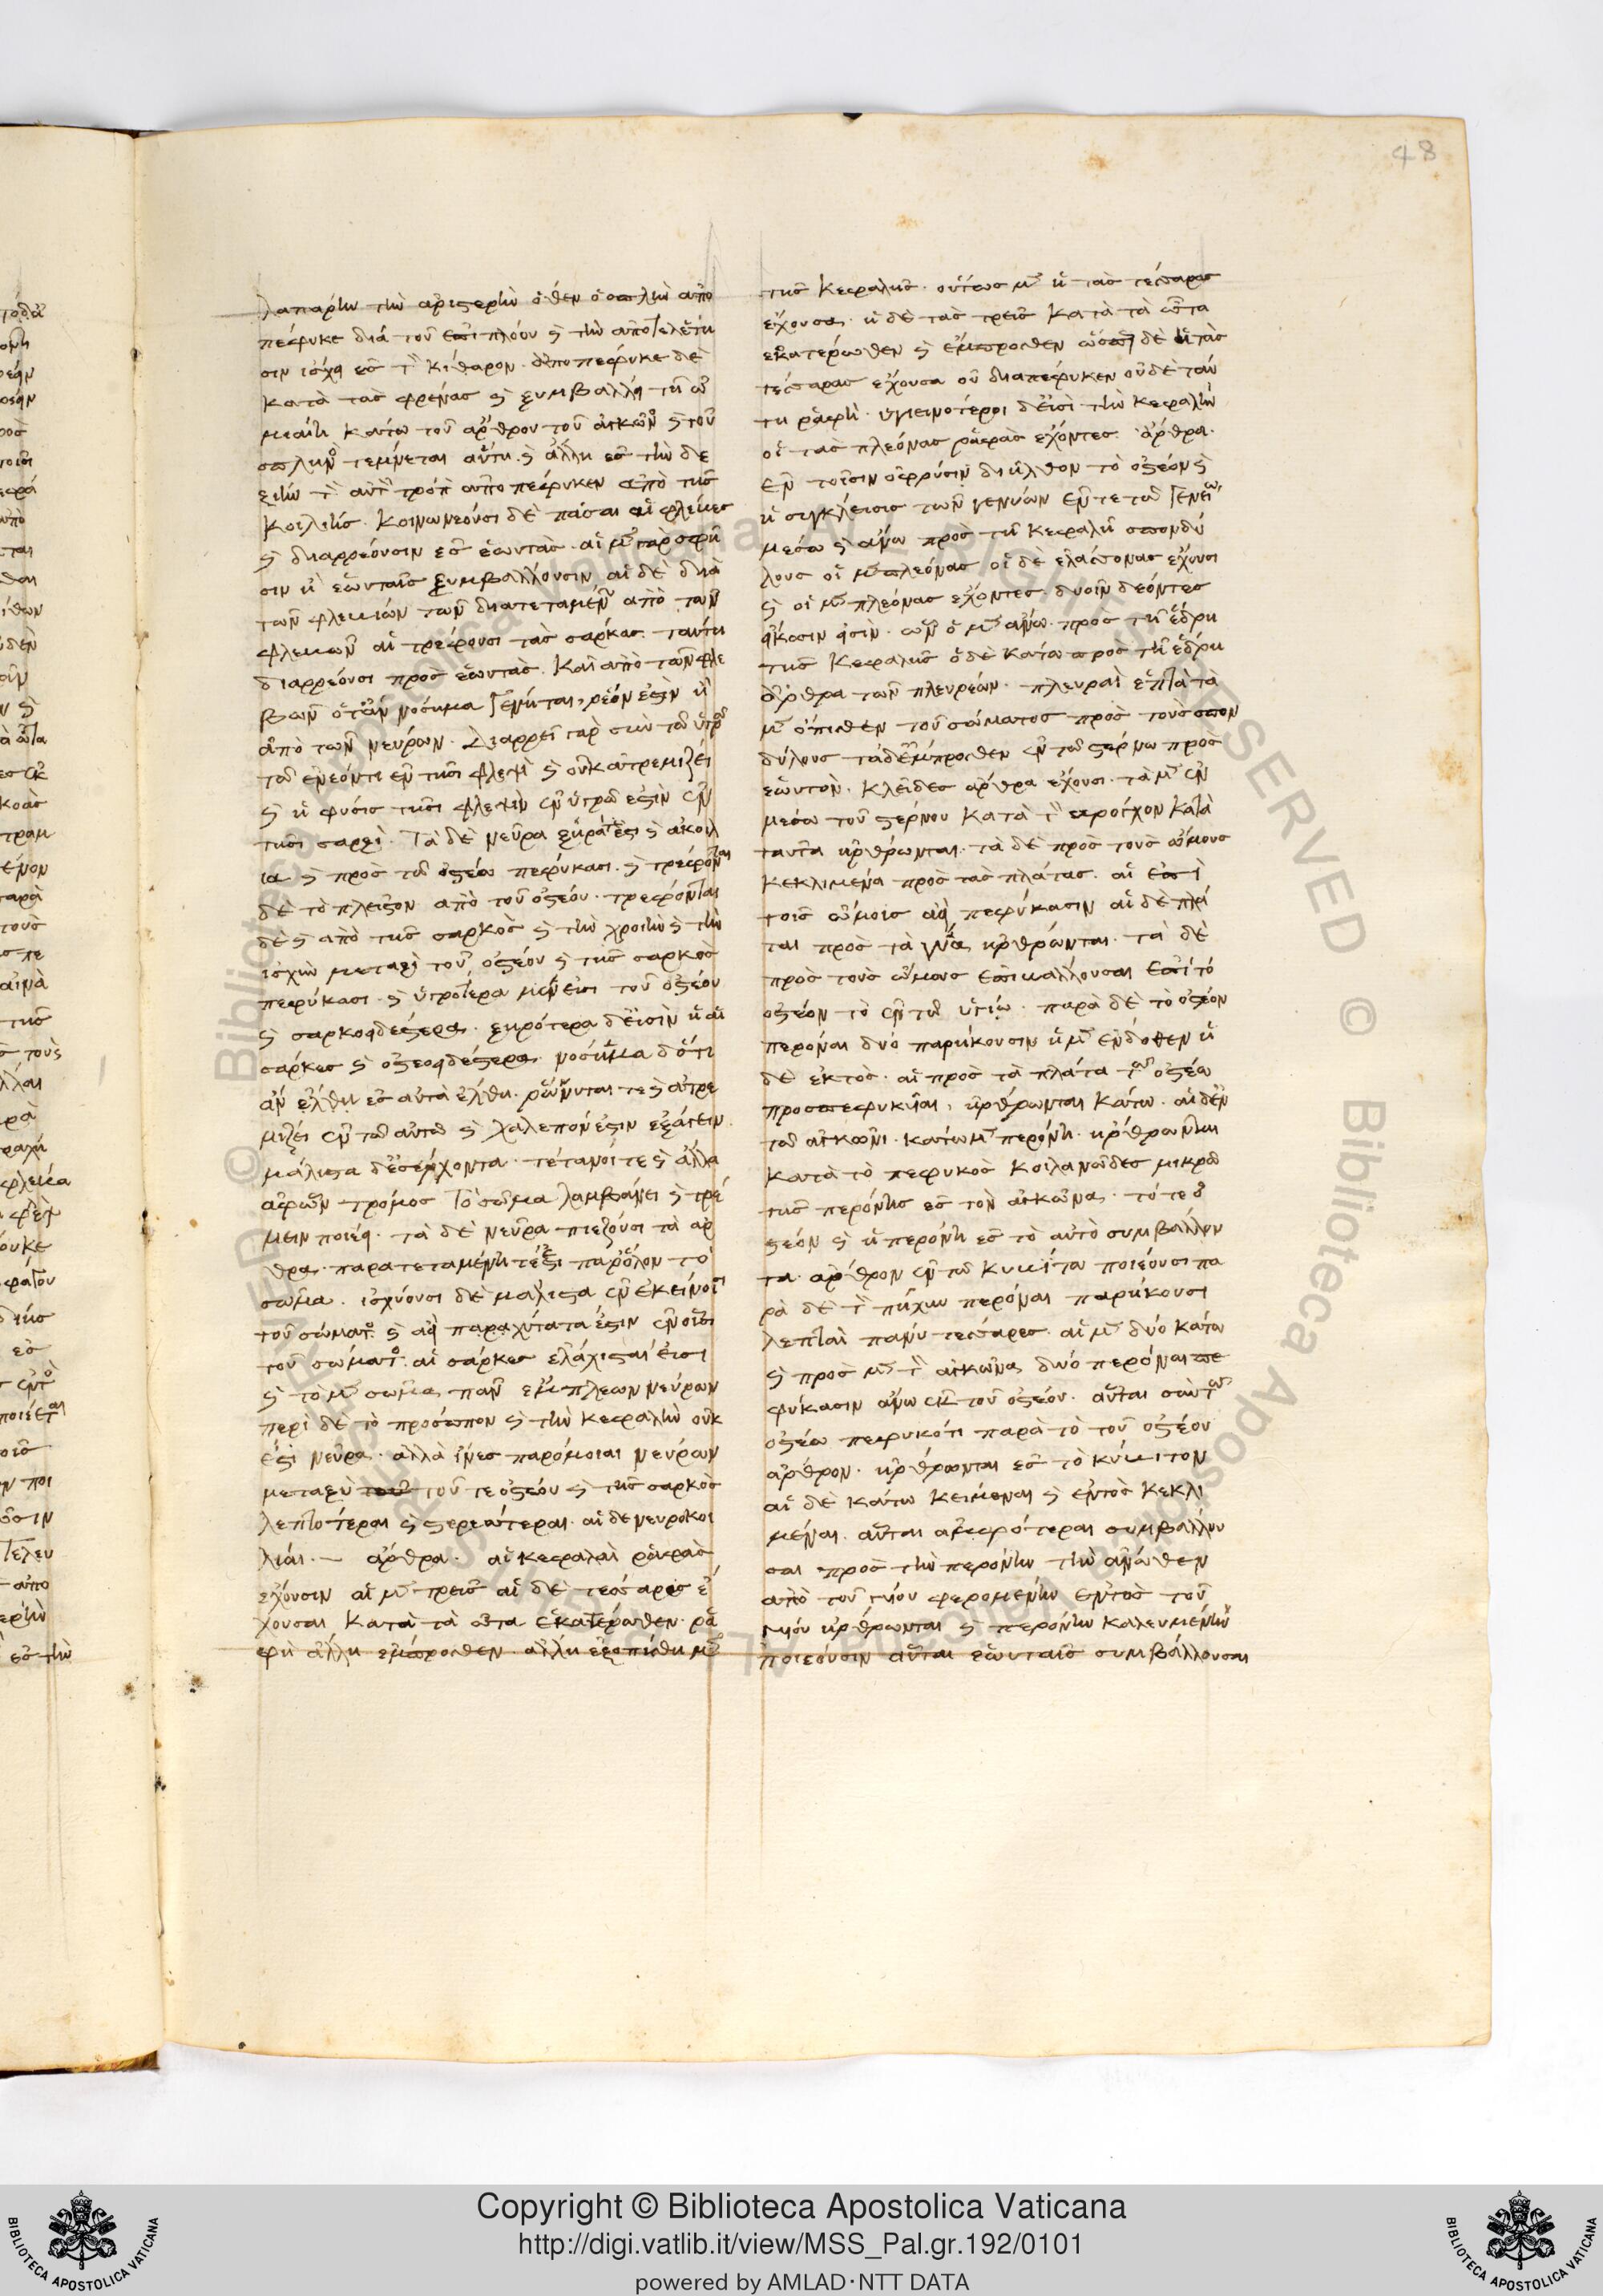 48
λαπαρὴν τὴν ἀριστερὴν ὅθεν ὁ σπλὴν ἀπο
πέφυκε διὰ τοῦ ἐπιπλόου ϗ τὴν ἀποτελεύτη
σιν ἴσχει ἐς τὸν κίθαρον. ἀποπέφυκε δὲ
κατὰ τὰς φρένας ϗ ξυμβάλλει τῇ ὠ
μιαίη κάτω τοῦ ἄρθρου τοῦ ἀγκῶνος ϗ τοῦ
σπληνὸς τέμνεται αὕτη. ϗ ἄλλη ἐς τὴν δε
ξιὴν τὸν αὐτὸν τρόπον ἀποπέφυκεν ἀπὸ τῆς
κοιλίης. κοινωνεούσι δὲ πᾶσαι αἱ φλέβες
ϗ διαρρέουσιν ἐς ἑωυτάς. αἱ μὲν γὰρ σφί
σιν ἢ ἑωυταῖς ξυμβάλλουσιν αἱ δὲ διὰ
τῶν φλεβίων τῶν διατεταμένων ἀπὸ τῶν
φλεβῶν αἳ τρέφουσι τὰς σάρκας. ταύτη
διαρρέουσι πρὸς ἑωυτάς. καὶ ἀπὸ τῶν φλε
βῶν ὅταν νόσημα γένηται, ῥᾷόν ἐστιν ἢ
ἀπὸ τῶν νεύρων. διαρρεῖ γὰρ σὺν τῷ ὑγρῷ
τῷ ἐνεόντι ἐν τῇσι φλεψὶ ϗ οὐκ ἀτρεμίζει
ϗ ἡ φύσις τῇσι φλεψὶν ἐν ὑγρῷ ἐστὶν ἐν
τῇσι σαρξί. τὰ δὲ νεῦρα ξηρά τέ ἐστι ϗ ἄκοιλ
ια ϗ πρὸς τῷ ὀστέῳ πεφύκασι. ϗ τρέφονται
δὲ τὸ πλεῖστον ἀπὸ τοῦ ὀστέου. τρέφονται
δὲ ϗ ἀπὸ τῆς σαρκὸς ϗ τὴν χροιὴν ϗ τὴν
ἰσχὺν μεταξὺ τοῦ ὀστέου ϗ τῆς σαρκὸς
πεφύκασι. ϗ ὑγρότερα μέν εἰσι τοῦ ὀστέου
ϗ σαρκοειδέστερα. ξηρότερα δέ εἰσὶν ἢ αἱ
σάρκες ϗ ὀστεοειδέστερα. νόσημα δ ὅτι
ἂν ἔλθη ἐς αὐτὰ ἔλθη. ῥώννυται τε ϗ ἀτρε
μίζει ἐν τῷ αὐτῷ ϗ χαλεπόν ἐστιν ἐξάγειν.
μάλιστα δ ἐσέρχονται. τέτανοί τε ϗ ἄλλα
ἀφ ὧν τρόμος τὸ σῶμα λαμβάνει ϗ τρέ
μειν ποιέει. τὰ δὲ νεῦρα πιεζοῦσι τὰ ἄρ
θρα. παρατεταμένη τέ ἐστι παρ ὅλον τὸ
σῶμα. ἰσχύουσι δὲ μάλιστα ἐν ἐκείνοισι
τοῦ σώματος ϗ αἰεὶ παραχύτατα ἐστιν ἐν οἷσι
τοῦ σώματος. αἱ σάρκες ἐλάχισταί εἰσι
ϗ τὸ μὲν σῶμα πᾶν ἔμπλεων νεύρων
περὶ δὲ τὸ πρόσωπον ϗ τὴν κεφαλὴν οὐκ
ἔστι νεῦρα. ἀλλὰ ἶνες παρόμοιαι νεύρων
μεταξὺ τοῦ τοῦ τε ὀστέου ϗ τῆς σαρκὸς
λεπτότεραι ϗ στερεώτεραι. αἱ δὲ νευροκοι
λιαι. — ἄρθρα. αἱ κεφαλαὶ ῥαφὰς
ἔχουσιν αἱ μὲν τρεῖς αἱ δὲ τέσσαρες ἔ
χουσαι κατὰ τὰ ὦτα ἑκατέρωθεν. ῥα
φὴ ἄλλη ἔμπροσθεν. ἄλλη ἐξόπισθη μὲν
τῆς κεφαλῆς. οὕτως μὲν ἡ τὰς τέσσαρας
ἔχουσα. ἡ δὲ τὰς τρεῖς κατὰ τὰ ὦτα
ἑκατέρωθεν ϗ ἔμπροσθεν ὥσπερ δὲ ἡ τὰς
τέσσαρας ἔχουσα οὐ διαπέφυκεν οὐδὲ ταύ
τη ῥαφή. ὑγιεινότεροι δ εἰσὶ τὴν κεφαλὴν
οἱ τὰς πλέονας ῥαφὰς ἔχοντες. ἄρθρα.
ἐν τοῖσιν ὀφρύσιν διῆλθον τὸ ὀστέον ϗ
ἡ σύγκλεισις τῶν γενύων ἔν τε τῷ γενείῳ
μέσῳ ϗ ἄνω πρὸς τῇ κεφαλῇ σπονδύ
λους οἱ μὲν πλέονας οἱ δὲ ἐλάσσονας ἔχουσι
ϗ οἱ μὲν πλέονας ἔχοντες. δυοῖν δέοντες
εἴκοσιν εἰσὶν. ὧν ὁ μὲν ἄνω. πρὸς τῇ ἕδρη
τῆς κεφαλῆς ὁ δὲ κάτω πρὸς τῇ ἕδρη
ἄρθρα τῶν πλευρέων. πλευραὶ ἑπτὰ τὰ
μὲν ὄπισθεν τοῦ σώματος πρὸς τοὺς σπον
δύλους τὰ δ ἔμπροσθεν ἐν τῷ στέρνῳ πρὸς
ἑωυτόν. κλεῖδες ἄρθρα ἔχουσι. τὰ μὲν ἐν
μέσῳ τοῦ στέρνου κατὰ τὸν προίχον κατὰ
ταῦτα ἤρθρωνται. τὰ δὲ πρὸς τοὺς ὤμους
κεκλιμένα πρὸς τὰς πλάτας. αἳ ἐπὶ
τοῖς ὤμοις αἰεὶ πεφύκασιν αἱ δὲ πλά
ται πρὸς τὰ γυῖα ἤρθρωνται. τὰ δὲ
πρὸς τοὺς ὤμους ἐπιβάλλουσαι ἐπὶ τὸ
ὀστέον τὸ ἐν τῷ ὑγίῳ. παρὰ δὲ τὸ ὀστέον
περόναι δύο παρήκουσιν ἡ μὲν ἔνδοθεν ἡ
δὲ ἐκτός. αἱ πρὸς τὰ πλάτα τῷ ὀστέῳ
προσπεφυκυῖαι, ἤρθρωνται κάτω. αἱ δ ἐν
τῷ ἀγκῶνι. κάτω μὲν περόνη. ἤρθρωνται
κατὰ τὸ πεφυκὸς κοιλανοιδες μικρῷ
τῆς περόνης ἐς τὸν ἀγκῶνα. τό τε ὀ
στέον ϗ ἡ περόνη ἐς τὸ αὐτὸ συμβάλλον
τα ἄρθρον ἐν τῷ κυβίτῳ ποιέουσι πα
ρὰ δὲ τὸν πῆχυν περόναι παρήκουσι
λεπταὶ πάνυ τέσσαρες. αἱ μὲν δύο κάτω
ϗ πρὸς μὲν τὸν ἀγκῶνα δύο περόναι πε
φύκασιν ἄνω ἐκ τοῦ ὀστέου. αὗται σὺν τῷ
ὀστέῳ πεφυκότι παρὰ τὸ τοῦ ὀστέου
ἄρθρον. ἤρθρωνται ἐς τὸ κύβιτον
αἱ δὲ κάτω κείμεναι ϗ ἐντὸς κεκλι
μέναι. αὗται ἀμφότεραι συμβάλλου
σαι πρὸς τὴν περόνην τὴν ἄνωθεν
ἀπὸ τοῦ γυίου φερομένην ἐντὸς τοῦ
γυίου ἤρθρωνται ϗ περόνην καλευμένην
ποιέουσιν αὗται ἑωυταῖς συμβάλλουσαι
Copyright © Biblioteca Apostolica Vaticana
http://digi.vatlib.it/view/MSS_Pal.gr.192/0101
powered by AMLAD·NTT DATA
BIBLIOTECA APOSTOLICA VATICANA
BIBLIOTECA APOSTOLICA VATICANA